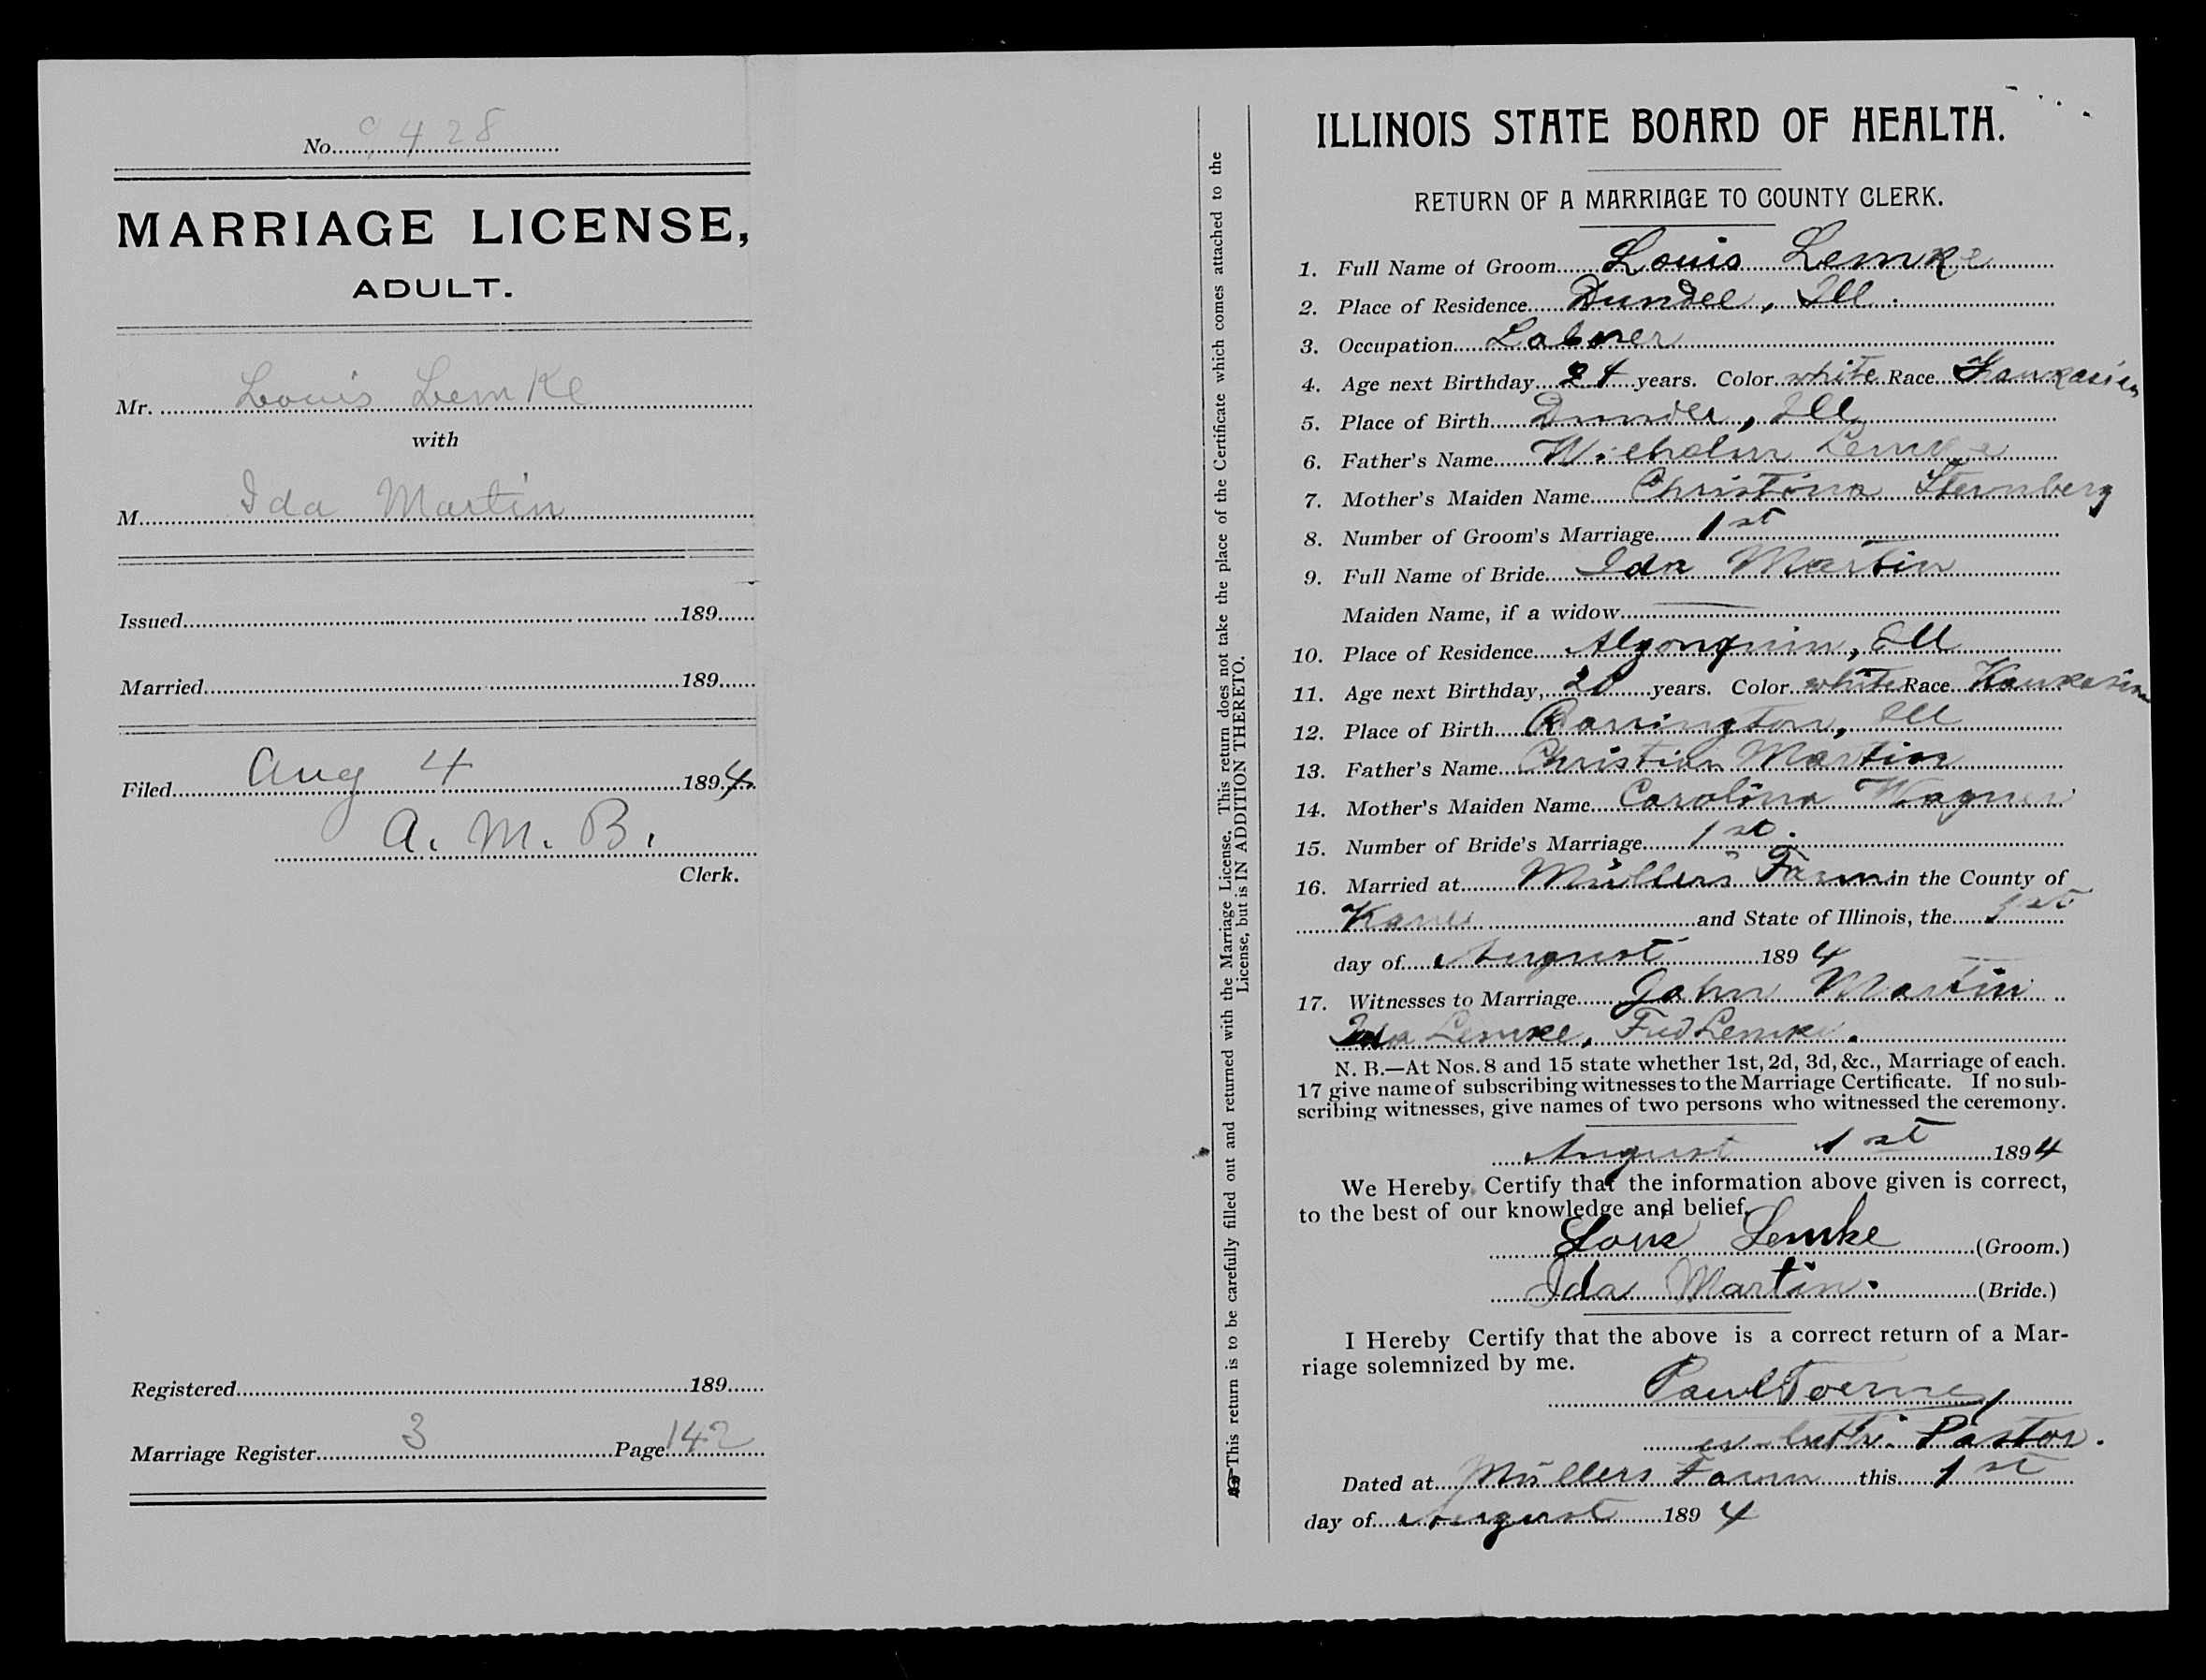 No. 9428
MARRIAGE LICENSE,
ADULT.
Mr. Louis Lemke
with
M Ida Martin
Issued 189
Married 189
Filed Aug 4 1894
A. M. B.
Clerk.
Registered 189
Marriage Register 3 Page 142
This return is to be carefully filled out and returned with the Marriage License. This return does not take the place of the Certificate which comes attached to the
License, but is IN ADDITION THERETO.
ILLINOIS STATE BOARD OF HEALTH.
RETURN OF A MARRIAGE TO COUNTY CLERK.
1. Full Name of Groom Louis Lemke
2. Place of Residence Dundee, Ill.
3. Occupation Laborer
4. Age next Birthday 24 years. Color white Race Kaukasien
5. Place of Birth Dundee, Ill
6. Father's Name Lemke
7. Mother's Maiden Name Christina Sternberg
8. Number of Groom's Marriage 1st
9. Full Name of Bride Ida Martin
Maiden Name, if a widow
10. Place of Residence Algonquin, Ill
11. Age next Birthday, years. Color white Race Kaukasien
12. Place of Birth Barrington, Ill
13. Father's Name Christian Martin
14. Mother's Maiden Name Carolina Wagner
15. Number of Bride's Marriage 1st.
16. Married at Müllers Farm in the County of
Kane and State of Illinois, the 1st
day of August 1894
17. Witnesses to Marriage John Martin
Ida Lemke, Fred Lemke.
N. B.—At Nos. 8 and 15 state whether 1st, 2d, 3d, &c., Marriage of each.
17 give name of subscribing witnesses to the Marriage Certificate. If no sub-
scribing witnesses, give names of two persons who witnessed the ceremony.
August 1st 1894
We Hereby Certify that the information above given is correct,
to the best of our knowledge and belief.
Louis Lemke (Groom.)
Ida Martin. (Bride.)
I Hereby Certify that the above is a correct return of a Mar-
riage solemnized by me.
Paul
ev. luth. Pastor.
Dated at Müllers Farm this 1st
day of August 1894